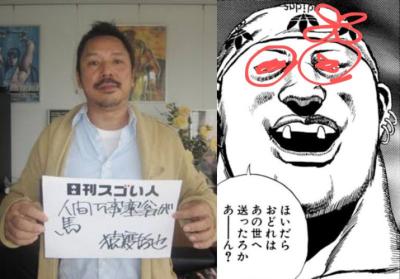 日刊スゴい人
人間万事塞翁が
馬
猿渡哲也
ほいだら
おどれは
あの世へ
送ったろか
あーん?